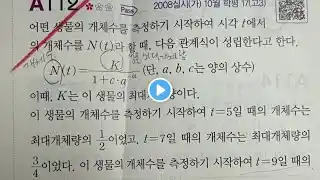 A11오
2008실시(가) 10월 학평 17(고3)
어떤 생물의 개체수를 측정하기 시작하여 시각 t에서
의 개체수를 N(t)라 할 때, 다음 관계식이 성립한다고 한다.
N(t) = K / (1+c·a (단, a, b, c는 양의 상수)
이때, K는 이 생물의 최대
이 생물의 개체수를 측정하기 시작하여 t=5일 때의 개체수는
최대개체량의 1/2이었고, t=7일 때의 개체수는 최대개체량의
3/4이었다. 이 생물의 개체수를 측정하기 시작하여 t=9일 때의